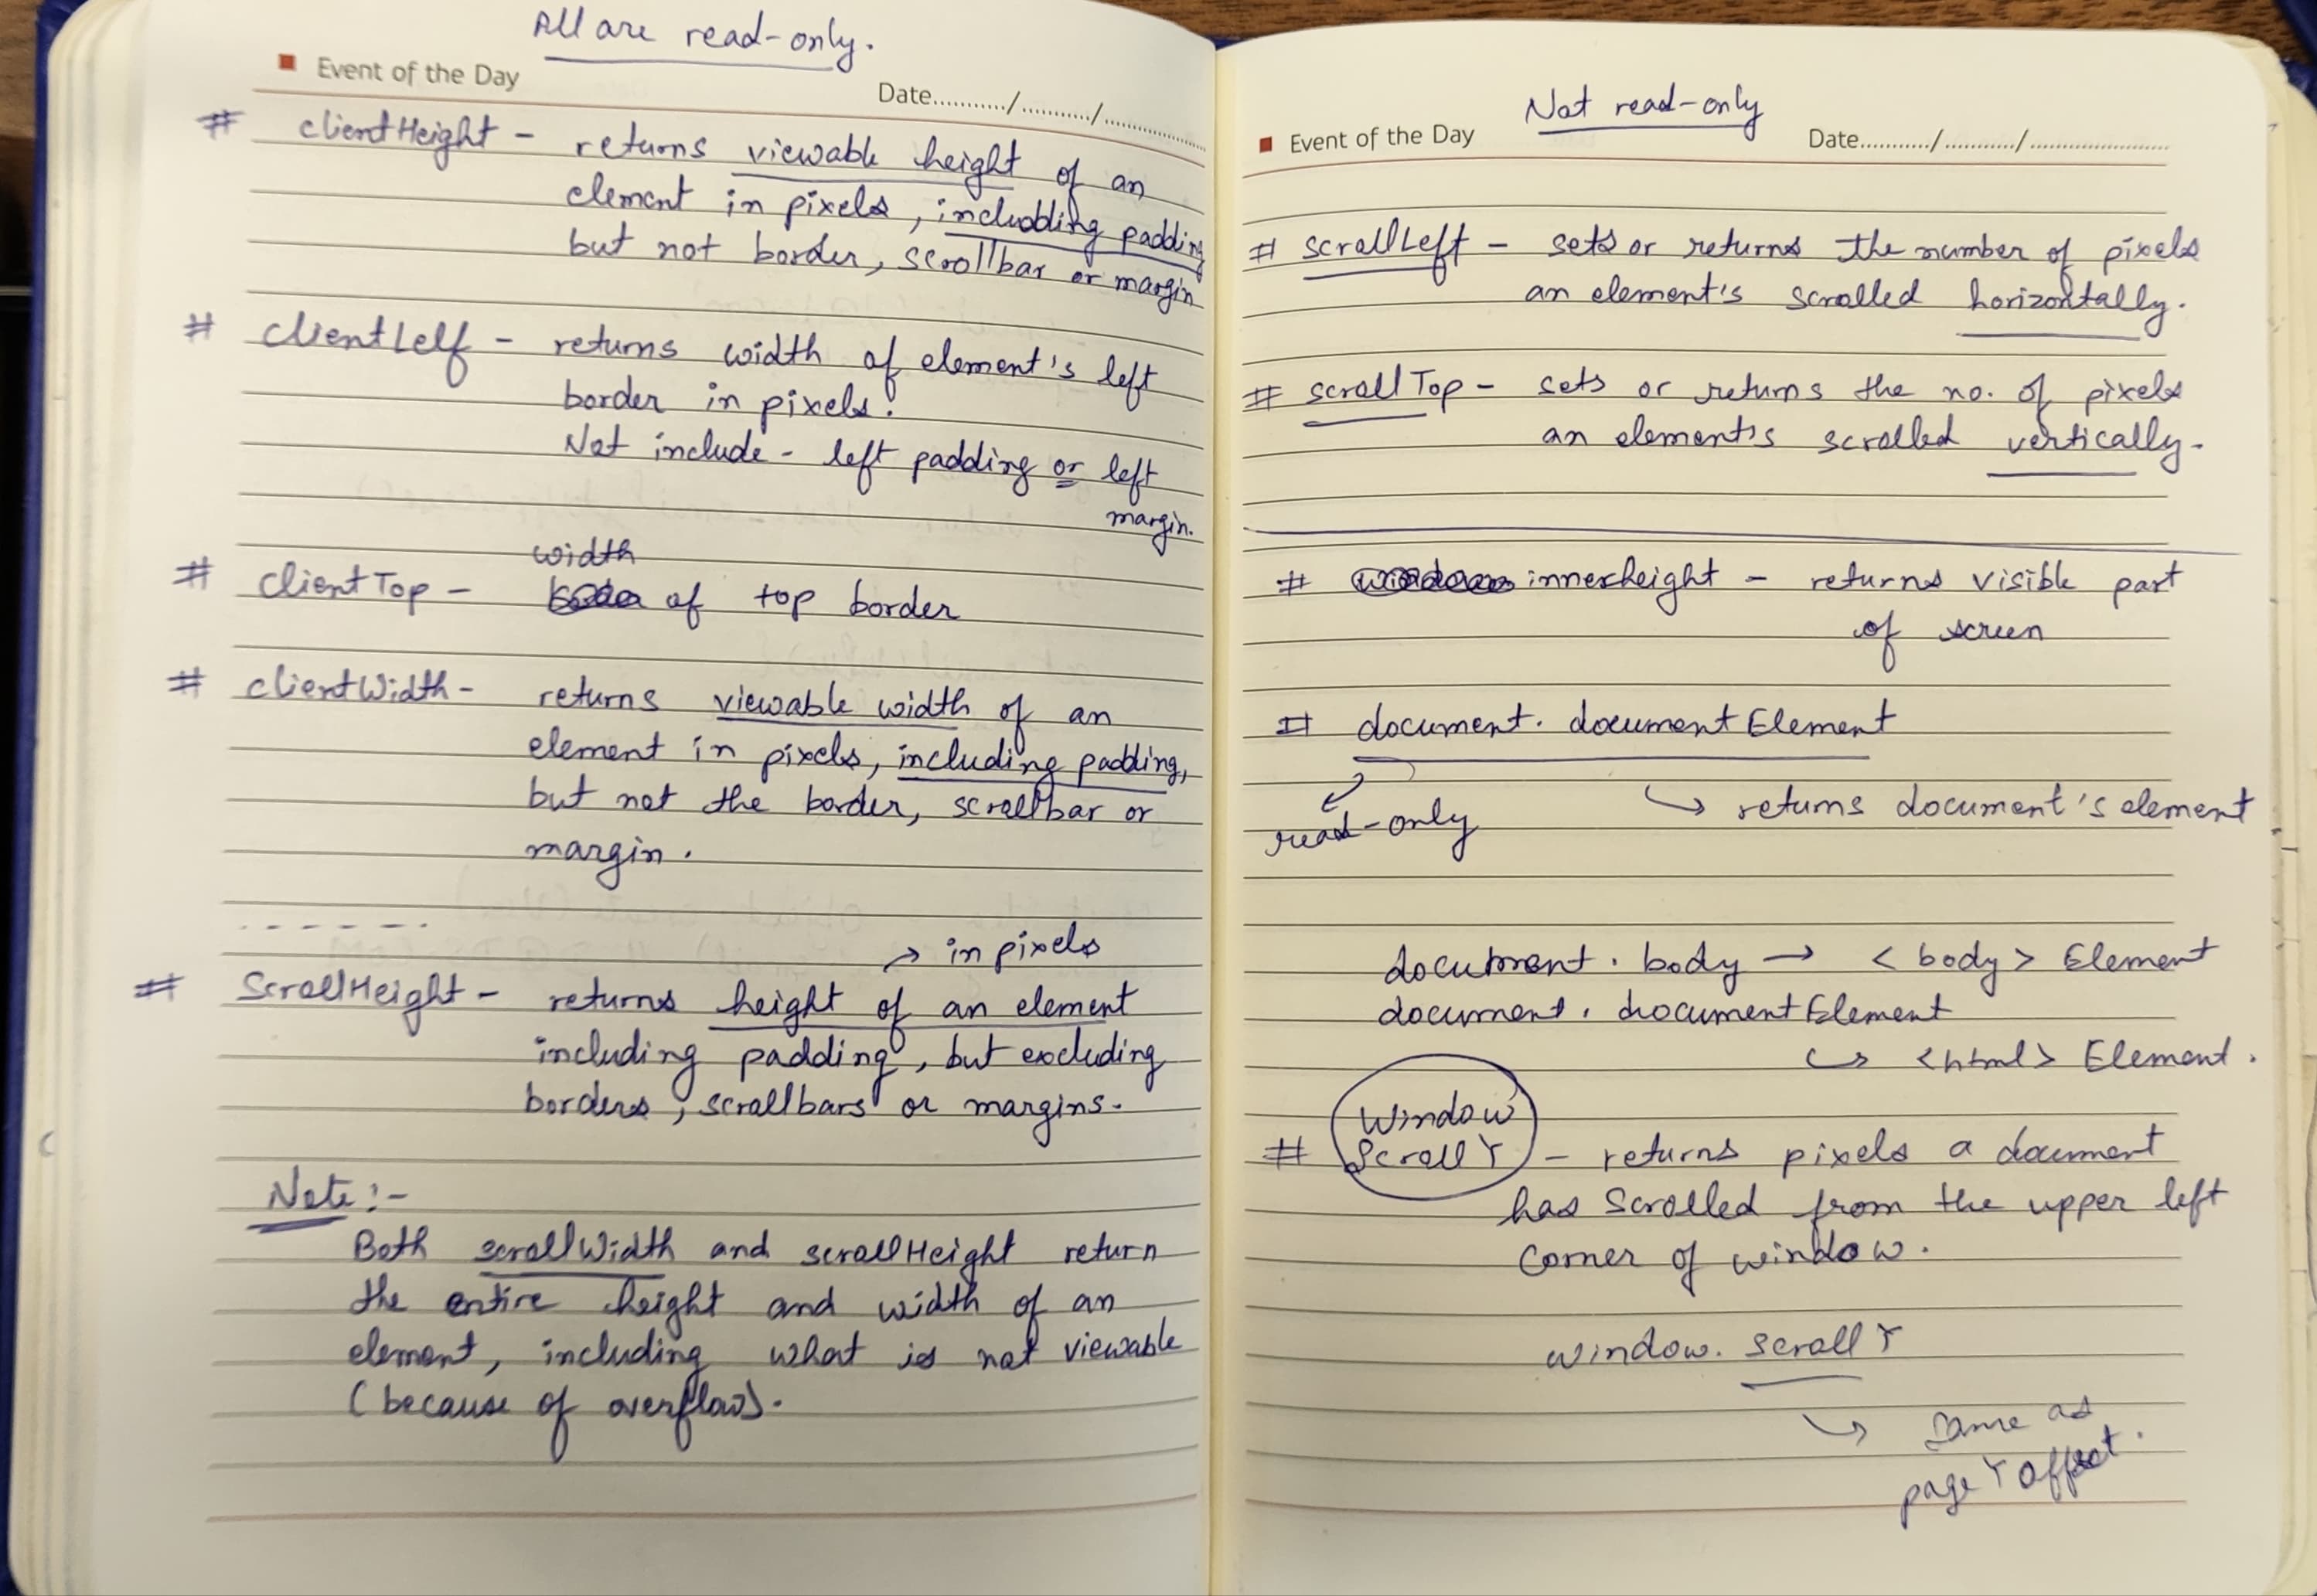 All are read-only.
Event of the Day
Date.........../.........../.....................
# clientHeight - returns viewable height of an
element in pixels, includding padding
but not border, scrollbar or margin
# clientLelf - returns width of element's left
border in pixels.
Not include - left padding or left
margin.
width
# clientTop - of top border
# clientWidth - returns viewable width of an
element in pixels, including padding,
but not the border, scrollbar or
margin.
→ in pixels
# ScrollHeight - returns height of an element
including padding, but excluding
borders, scrollbars or margins.
Note :-
Both scrollWidth and scrollHeight return
the entire height and width of an
element, including what is not viewable
(because of overflow).
Not read-only
Event of the Day
Date.........../.........../.....................
# scrollLeft - sets or returns the number of pixels
an element's scrolled horizontally.
# scrollTop - sets or returns the no. of pixels
an element's scrolled vertically.
# innerheight - returns visible part
of screen
# document. documentElement
↳ returns document's element
read-only
document. body → <body> Element
document. documentElement
↳ <html> Element.
Window
# Scroll Y - returns pixels a document
has Scrolled from the upper left
Corner of window.
window. scroll Y
↳ Same as
page Y offset.